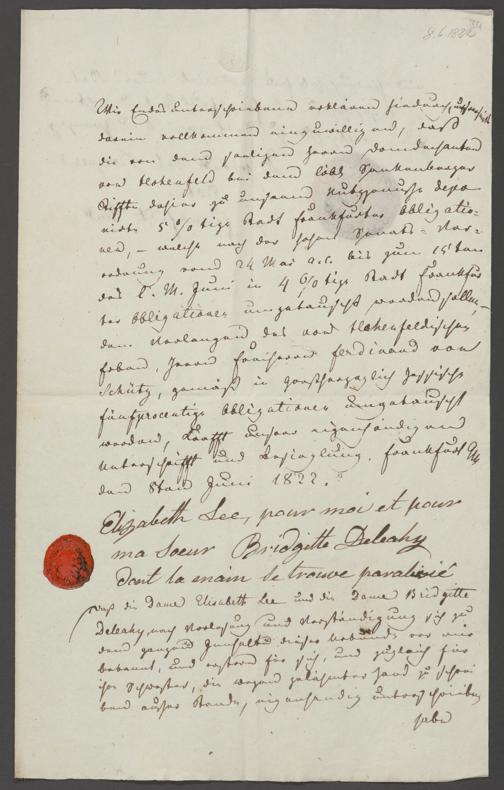 8.6.1822
Wir Endesunterschriebene erklären hierdurch,
darein vollkommen einzuwilligen, daß
die von dem seeligen Herrn Domdechanten
von Hohenfeld bei dem löbl. Senkenberger
Stifte dahier zu unserm Nutzgenusse depo-
nirte 5 %tige Stadt Frankfurter Obligatio-
nen, – welche nach der hohen Senats-Ver-
ordnung vom 24 Mai a.c. bis zum 15ten
des l. M. Juni in 4 %tige Stadt Frankfur
ter Obligationen umgetauscht werden sollen, –
dem Verlangen des von Hohenfeldischen
Erben, Herrn Freiherrn Ferdinand von
Schütz, gemäß in Großherzoglich Hessische
fünfprocentige Obligationen umgetauscht
werden, Krafft unserer eigenhändigen
Unterschrifft und Besieglung. Frankfurt
den 8ten Juni 1822.
Elizabeth Lee, pour moi et pour
ma Soeur Bridgitte Deleahy
dont la main se trouve paralisié
Daß die Dame Elisabeth Lee und die Dame Bridgitte
Deleahy, nach Vorlesung und Verständigung sich zu
dem ganzen Innhalte dieser Urkunde vor mir
bekannt, und erstere für sich, und zugleich für
ihre Schwester, die wegen gelähmter Hand zu schrei
ben außer Stande, eigenhändig unterschrieben
habe